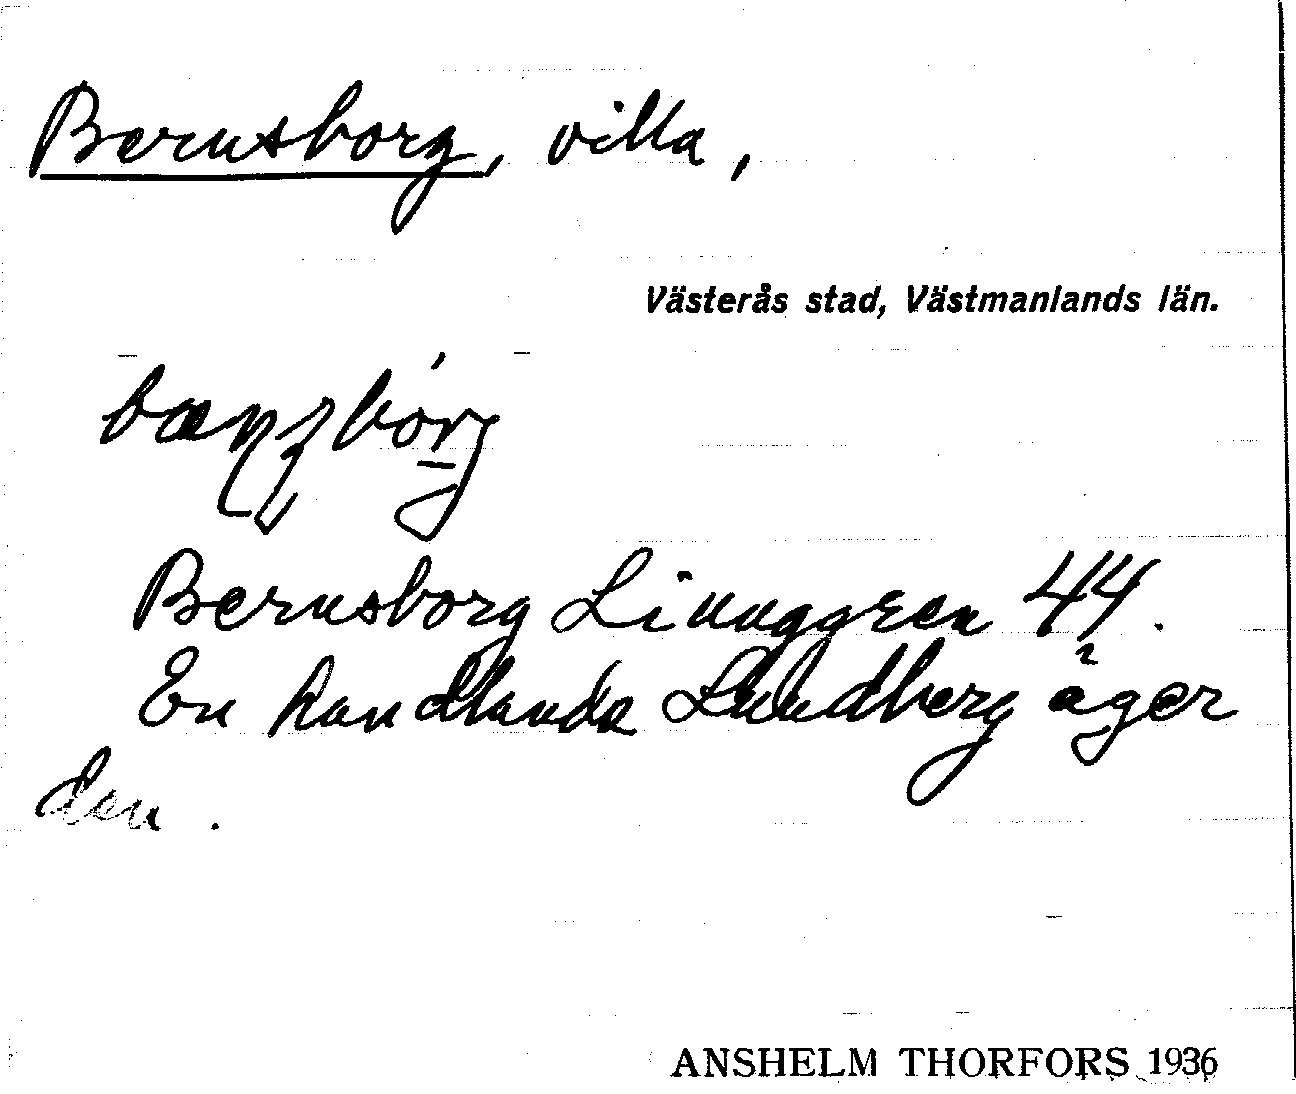 Bernsborg, villa,
Västerås stad, Västmanlands län.
Bernsborg Linnggren 44.
En handlande Lundberg äger
den.
ANSHELM THORFORS 1936